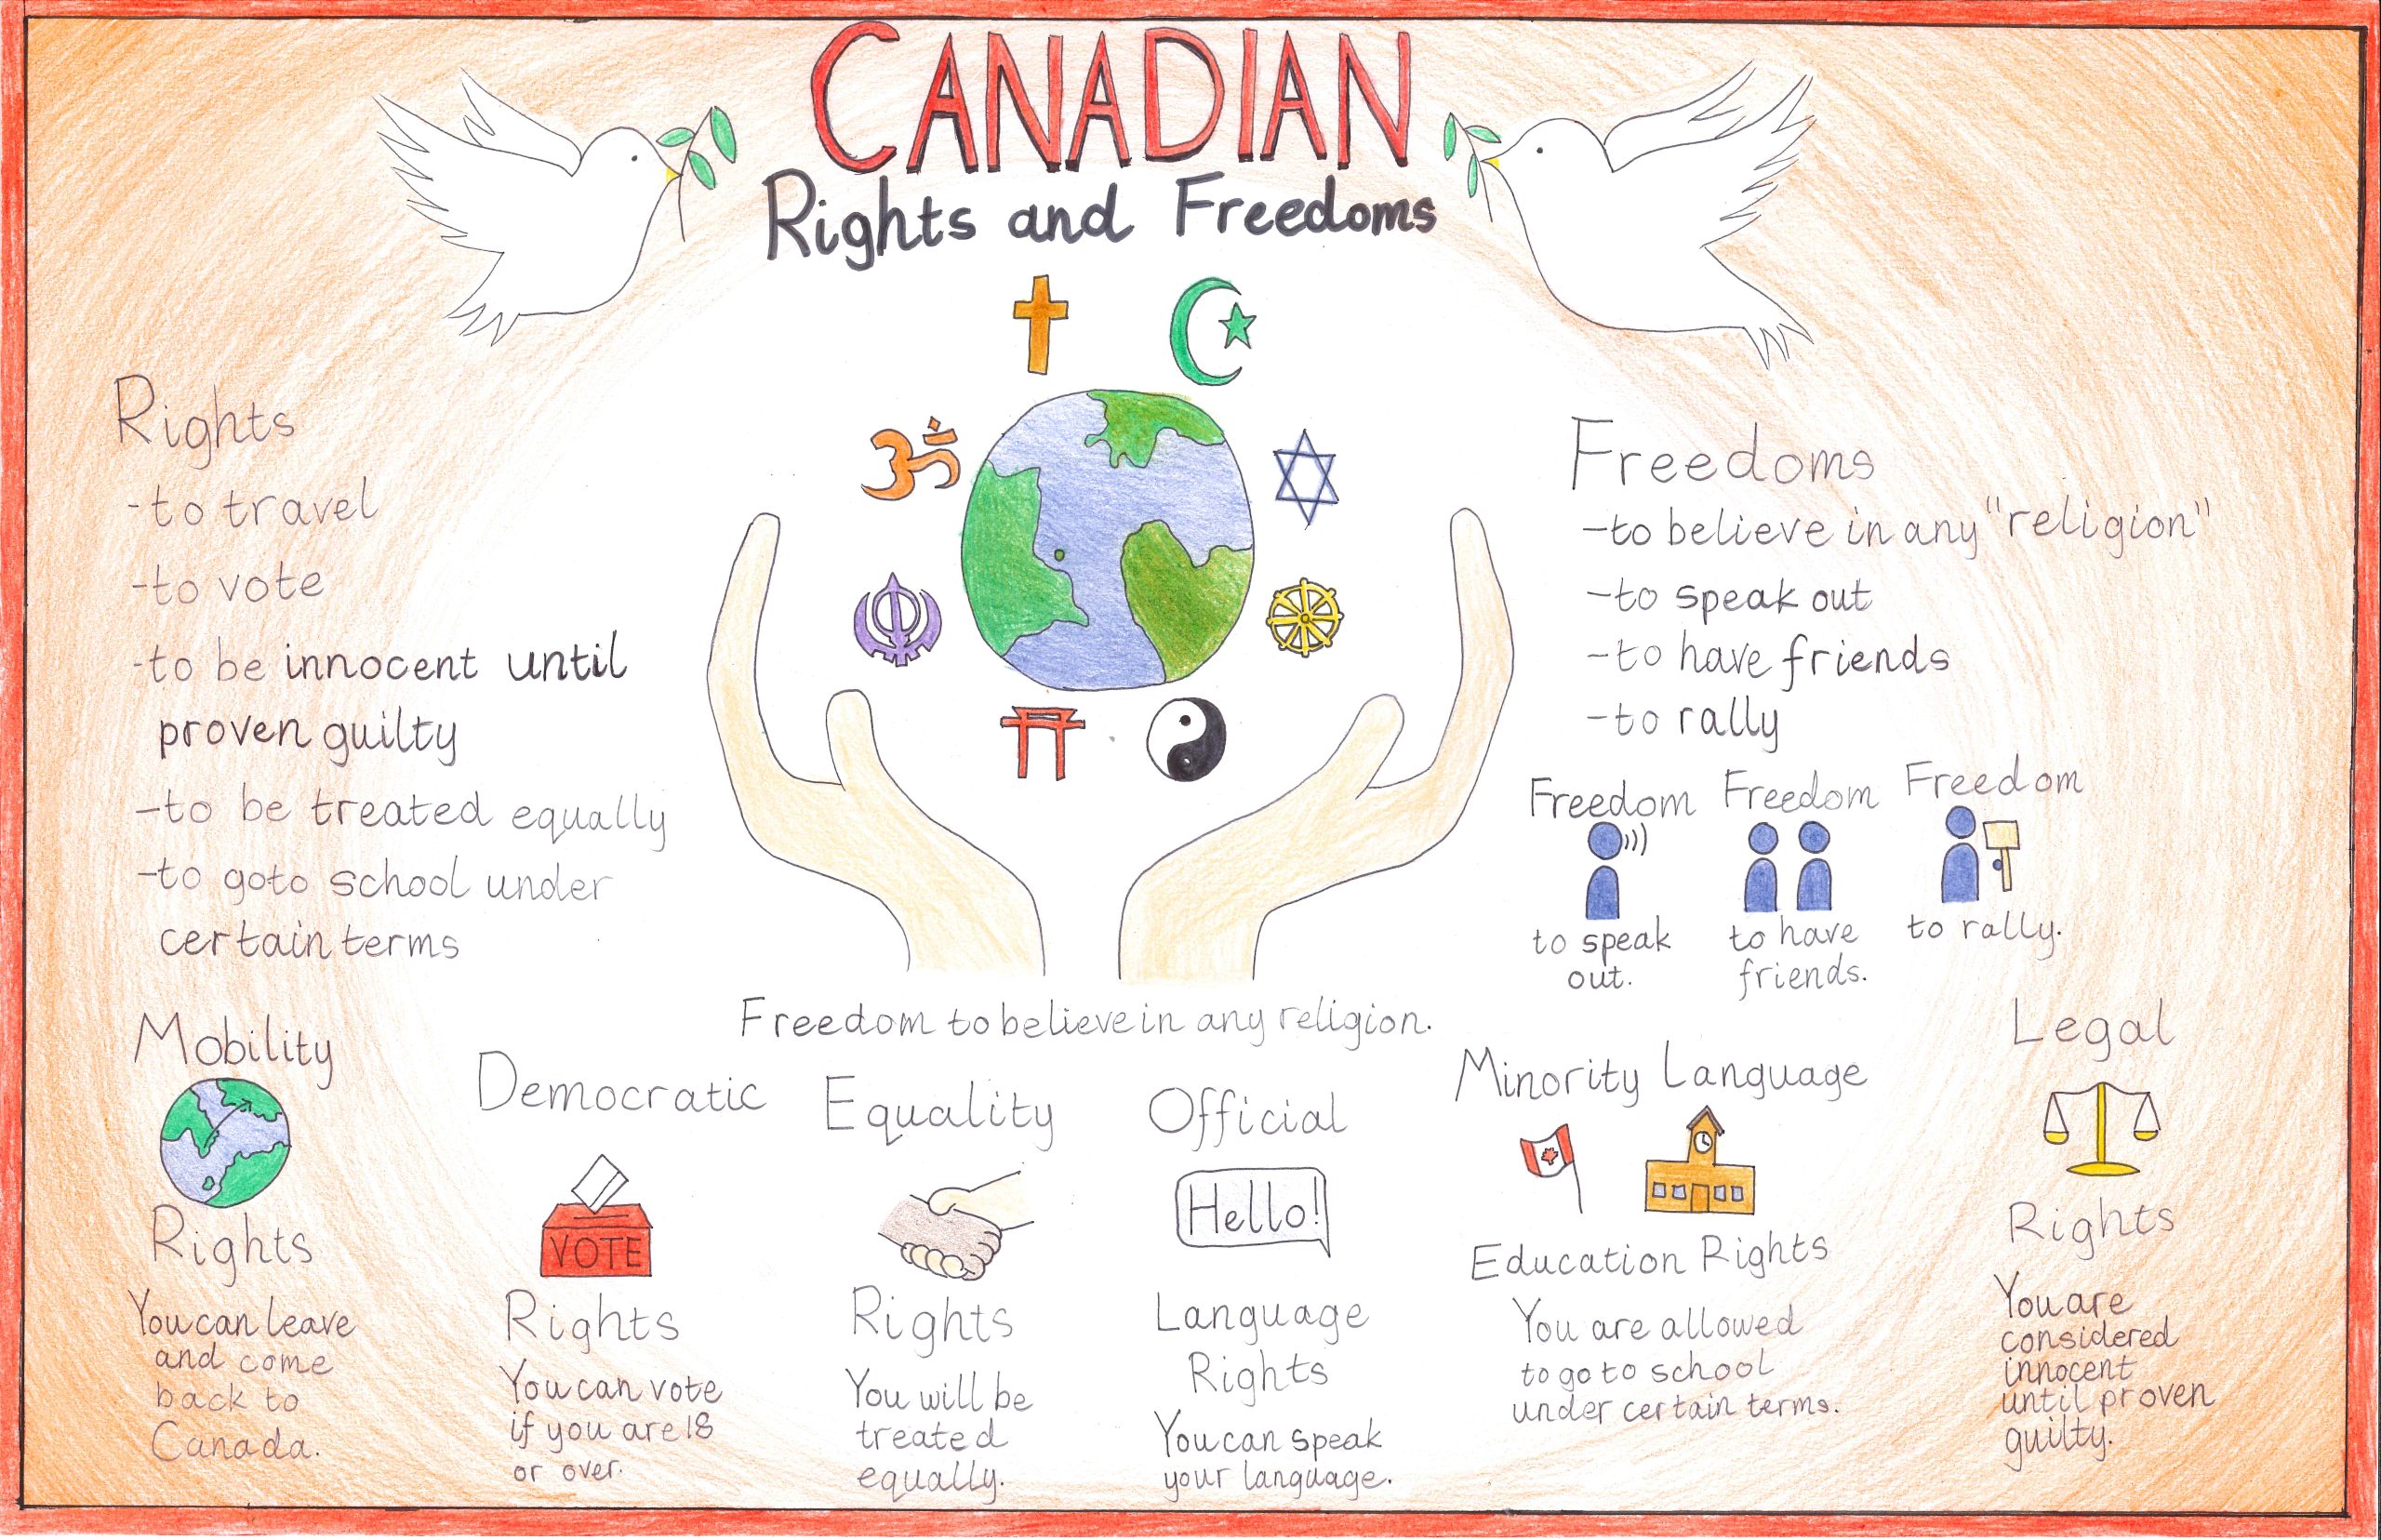 CANADIAN
Rights and Freedoms
Rights
-to travel
-to vote
-to be innocent until
proven guilty
-to be treated equally
-to goto school under
certain terms
Freedoms
-to believe in any "religion"
-to speak out
-to have friends
-to rally
Freedom
to speak
out.
Freedom
to have
friends.
Freedom
to rally.
Freedom to believe in any religion.
Mobility
Rights
You can leave
and come
back to
Canada.
Democratic
VOTE
Rights
You can vote
if you are 18
or over.
Equality
Rights
You will be
treated
equally.
Official
Hello!
Language
Rights
You can speak
your language.
Minority Language
Education Rights
You are allowed
to go to school
under certain terms.
Legal
Rights
You are
considered
innocent
until proven
guilty.